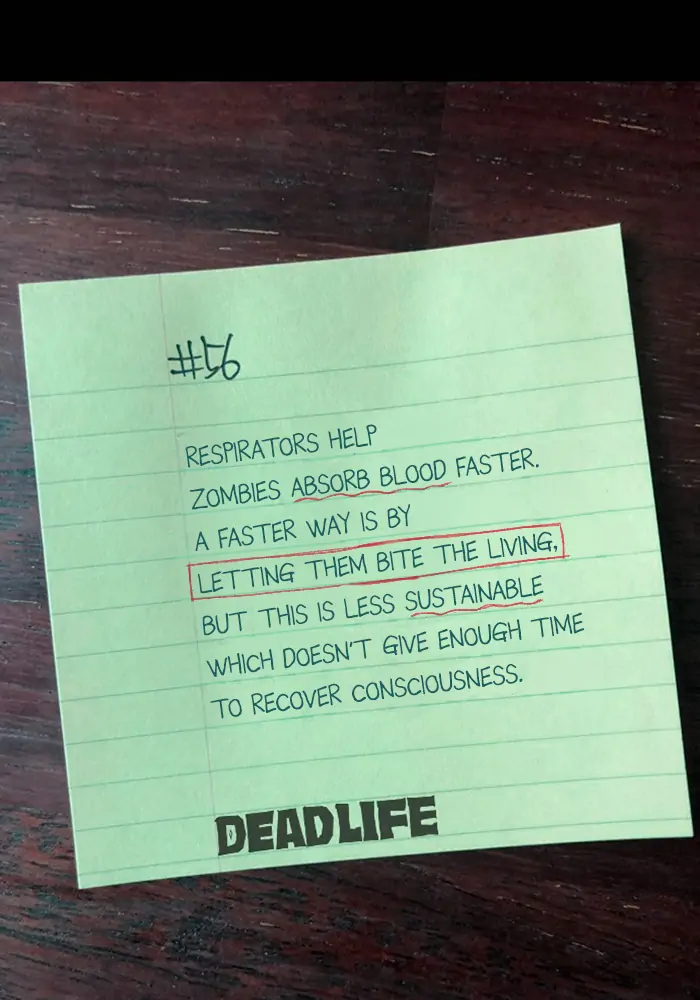 #56
RESPIRATORS HELP
ZOMBIES ABSORB BLOOD FASTER.
A FASTER WAY IS BY
LETTING THEM BITE THE LIVING,
BUT THIS IS LESS SUSTAINABLE
WHICH DOESN'T GIVE ENOUGH TIME
TO RECOVER CONSCIOUSNESS.
DEADLIFE